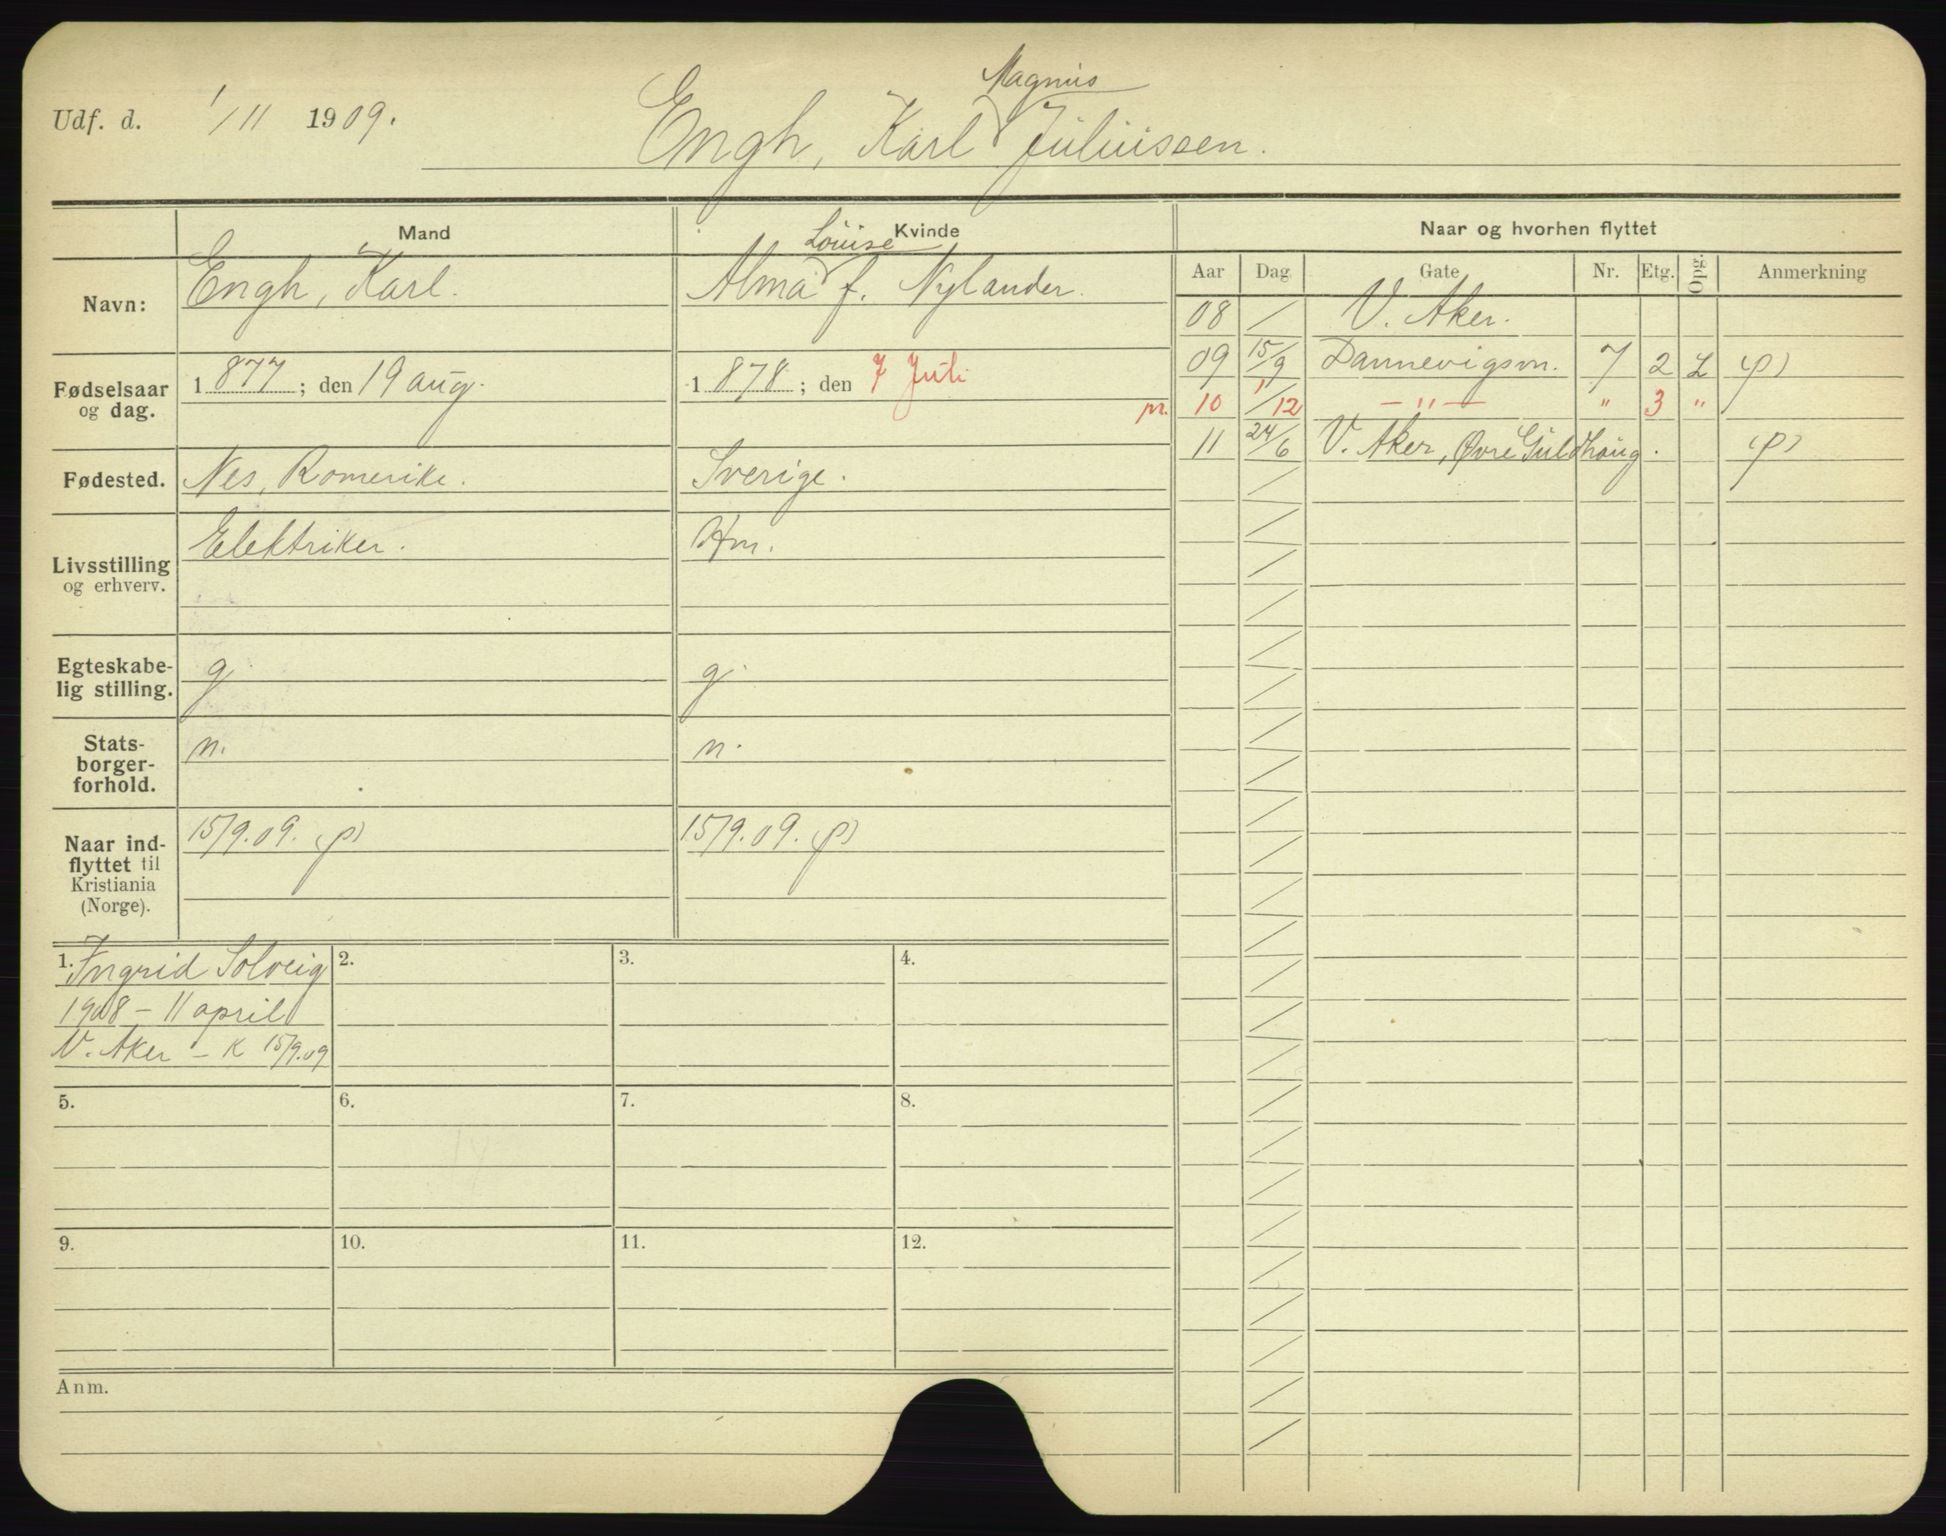 Udf. d. 1/11 1909.
Magnus
Engh, Karl Juliussen.
Mand
Kvinde
Naar og hvorhen flyttet
Aar Dag Gate Nr. Etg. Opg. Anmerkning
Navn: Engh, Karl.
Louise
Alma f. Nylander.
Fødselsaar og dag.
1877; den 19 aug.
1878; den 7 Juli
pr.
Fødested. Nes, Romerike.
Sverige.
Livsstilling og erhverv.
Elektriker.
Hm.
Egteskabe-
lig stilling.
g
g.
Stats-
borger-
forhold.
n.
n.
Naar ind-
flyttet til
Kristiania
(Norge).
15/9.09. (p)
15/9.09. (p)
08 / V. Aker.
09 15/9 Dannevigsvn. 7 2 L (p)
10 1/12 — " — " 3 "
11 24/6 V. Aker, Øvre Guldhaug. (p)
1. Ingrid Solveig
1908 – 11 april
V. Aker – K 15/9.09
2.
3.
4.
5.
6.
7.
8.
9.
10.
11.
12.
Anm.